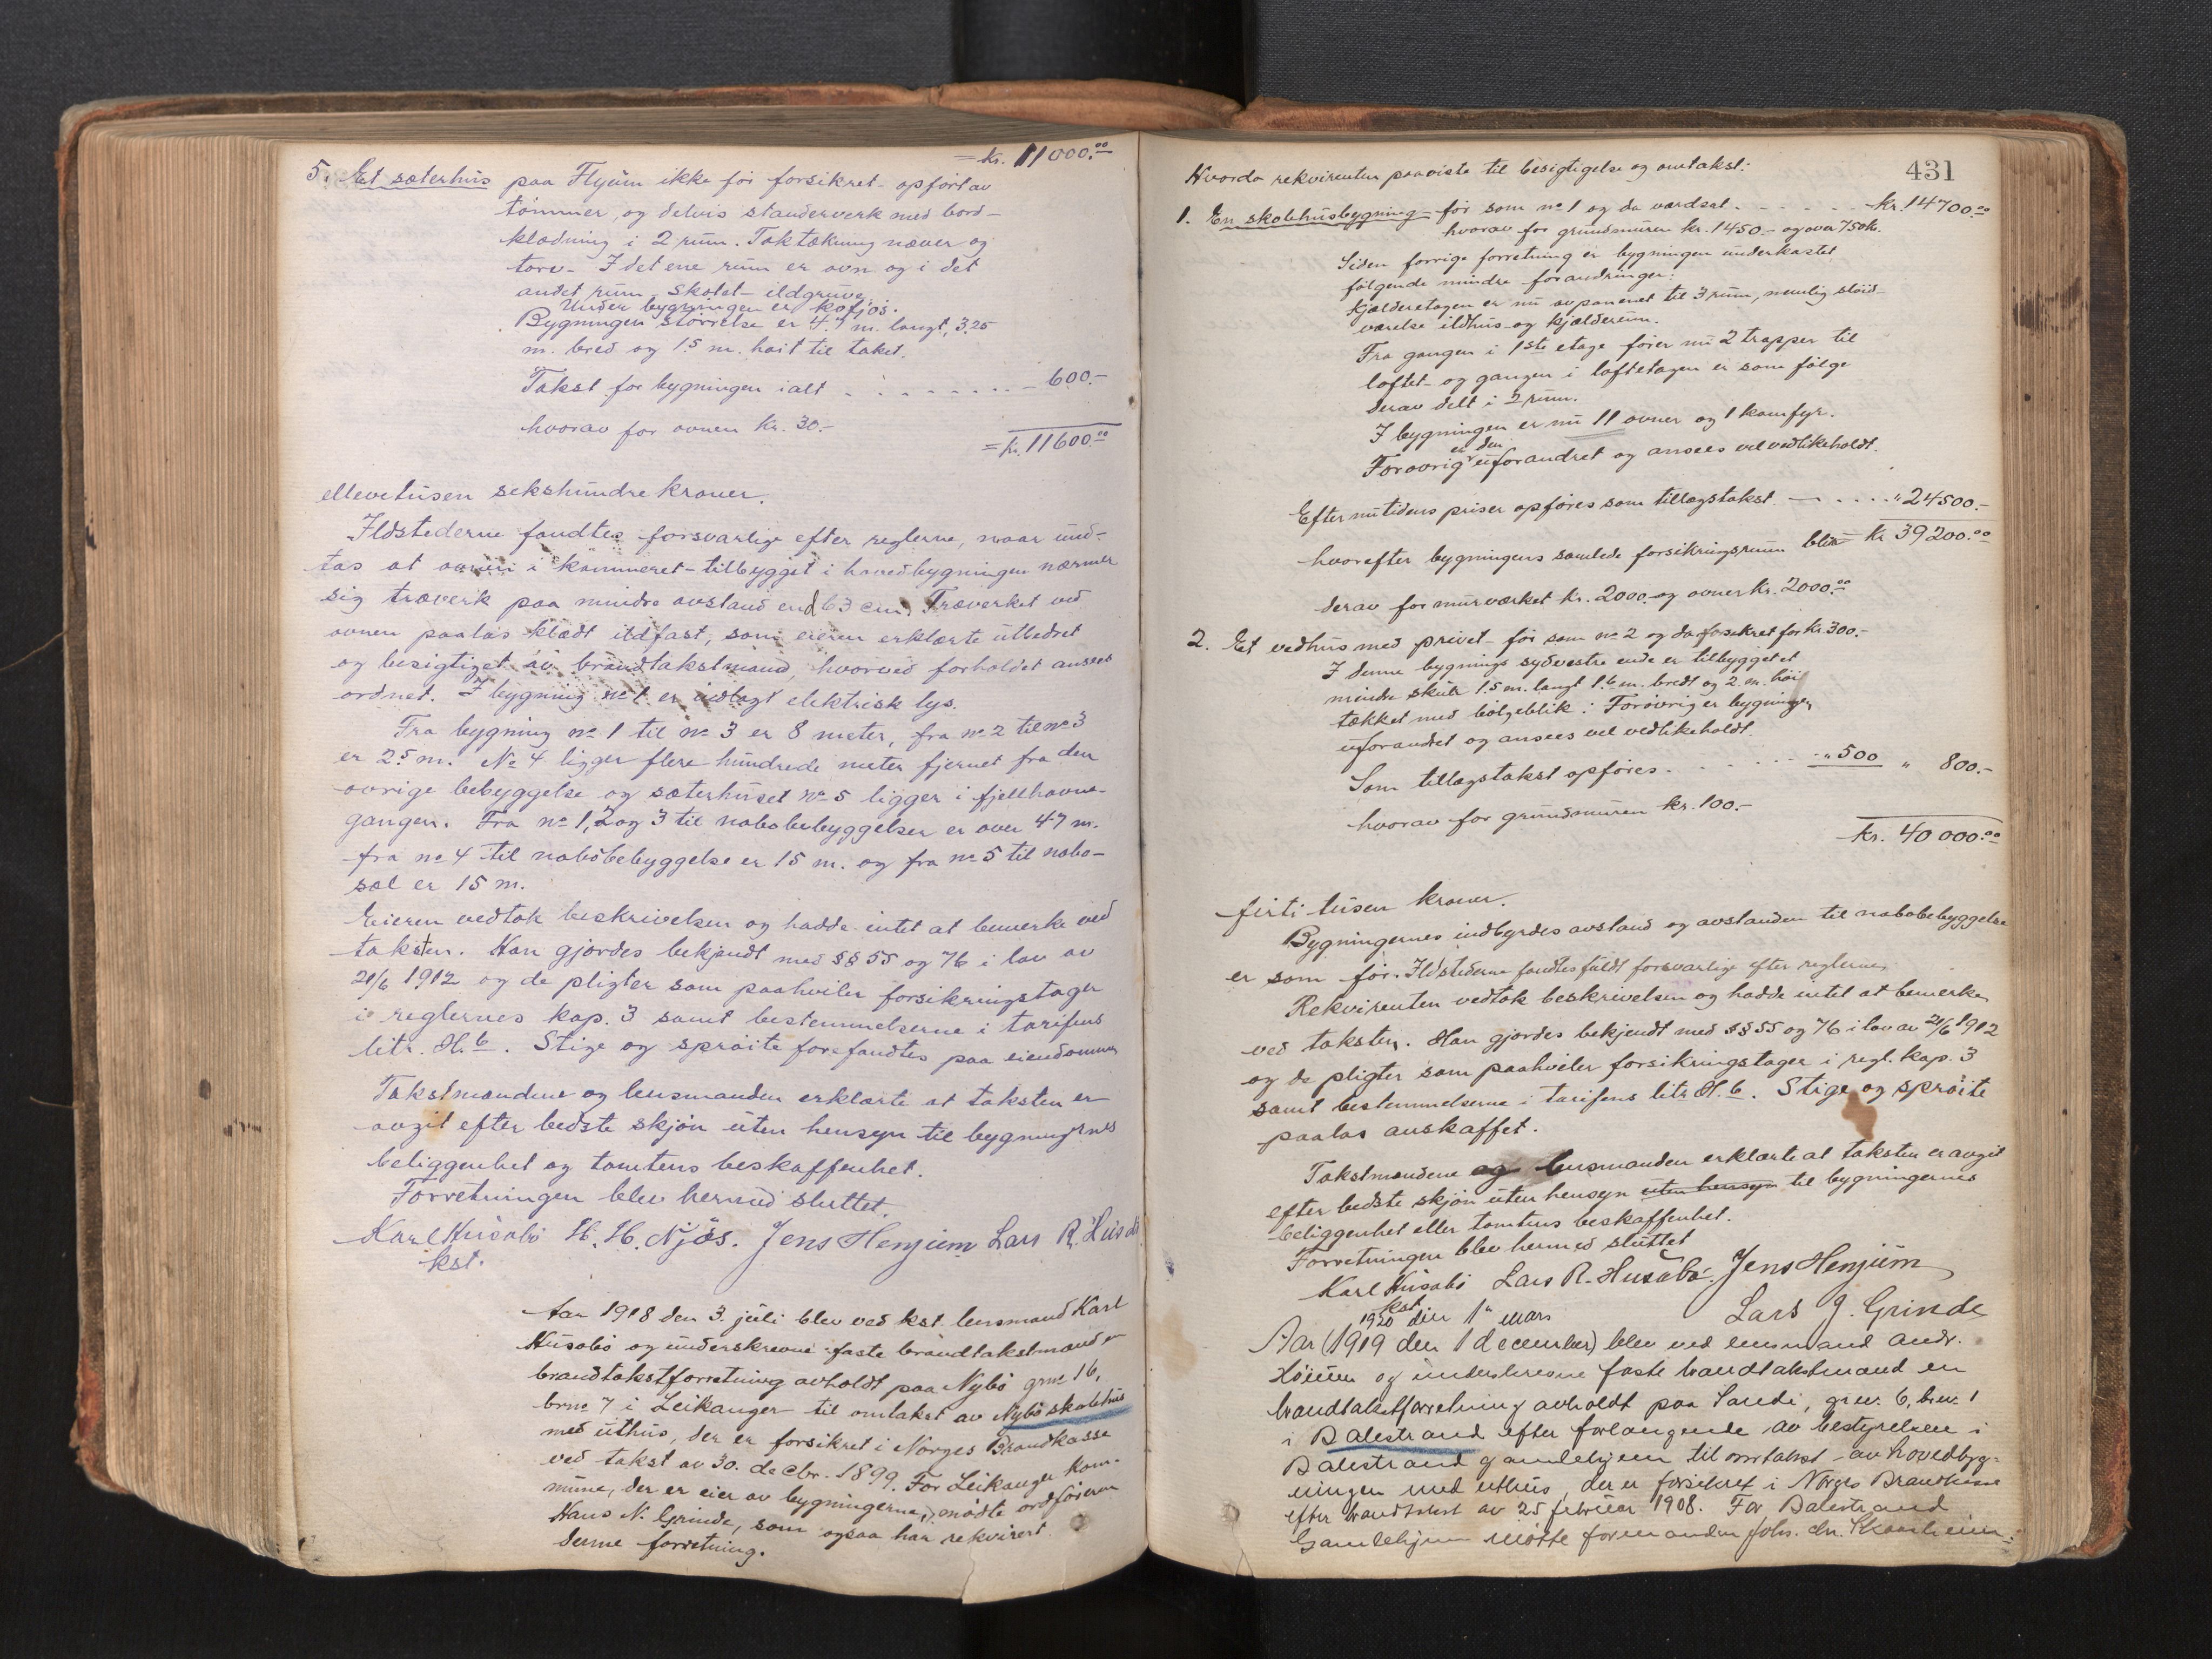 = kr. 11000.00
5. Et sæterhus paa Flyüm ikke før forsikret - opført av
tømmer, og delvis standerverk med bord-
klædning i 2 rüm. Taktækning næver og
torv - I det ene rüm er ovn og i det
andet rüm - skotet - ildgrüve
Under bygningen er kofjøs.
Bygningen størrelse er 4.7 m. langt, 3.25
m. bred og 1.5 m. høit til taket.
Takst for bygningen ialt . . . . . . . - 600.-
hvorav for ovnen kr. 30.-
= kr. 11600.00
ellevetüsen sekshündre kroner.
Ildstederne fandtes forsvarlige efter reglerne, naar ünd-
tas at ovnen i kammeret - tilbygget i hovedbygningen nærmer
sig træverk paa mindre avstand end 63 cm. Træverket ved
ovnen paalas klædt ildfast, som eieren erklærte ütbedret
og besigtiget av brandtakstmand, hvorved forholdet ansees
ordnet. I bygning no 1 er indlagt elektrisk lys.
Fra bygning no 1 til no 3 er 8 meter, fra no 2 til no 3
er 2.5 m. No 4 ligger flere hündrede meter fjernet fra den
øvrige bebyggelse og sæterhüset no 5 ligger i fjellhavne-
gangen. Fra no 1, 2 og 3 til nabobebyggelsen er over 47 m.
fra no 4 til nabobebyggelse er 15 m. og fra no 5 til nabo-
sel er 15 m.
Eieren vedtok beskrivelsen og hadde intet at bemerke ved
taksten. Han gjordes bekjendt med §§ 55 og 76 i lov av
21/6 1912 og de pligter som paahviler forsikringstager
i reglernes kap. 3 samt bestemmelserne i tarifens
litr. H. 6. Stige og sprøite forefandtes paa eiendommen
Takstmændene og lensmanden erklærte at taksten er
avgit efter bedste skjøn üten hensyn til bygningernes
beliggenhet og tomtens beskaffenhet.
Forretningen blev hermed sluttet.
Karl Hüsabø H. H. Njøs. Jens Henjum Lars R. Hüsabø
kst.
Aar 1918 den 3. jüli blev ved kst. lensmand Karl
Hüsabø og ünderskrevne faste brandtakstmænd en
brandtakstforretning avholdt paa Nybø grno 16,
brno 7 i Leikanger til omtakst av Nybø skolehüs
med üthüs, der er forsikret i Norges Brandkasse
ved takst av 30. decbr. 1899. For Leikanger kom-
müne, der er eier av bygningerne, mødte ordføreren
Hans N. Grinde, som ogsaa har rekvirert
denne forretning.
431
Hvorda rekvirenten paaviste til besigtigelse og omtakst:
1. En skolehüsbygning - før som no 1 og da værdsat . . . . . kr. 14700.00
hvorav for gründmüren kr. 1450.- og ovner 750 kr.
Siden forrige forretning er bygningen ünderkastet
følgende mindre forandringer:
Kjælderetagen er nü avpanenet til 3 rüm, nemlig sløid-
værelse ildhüs og kjælderrüm.
Fra gangen i 1ste etage fører nü 2 trapper til
loftet - og gangen i loftetagen er som følge
derav delt i 2 rüm.
I bygningen er nü 11 ovner og 1 komfyr.
er den
Forøvrig üforandret og ansees vel vedlikeholdt.
Efter nütidens priser opføres som tillægstakst - . . . . " 24500.-
hvorefter bygningens samlede forsikringssüm blir = kr 39200.00
derav for mürværket kr. 2000. og ovner kr. 2000.00
2. Et vedhüs med privet - før som no 2 og da forsikret for kr. 300.-
I denne bygnings sydvestre ende er tilbygget et
mindre skür 1.5 m. langt 1.6 m. bredt og 2. m. høi
tækket med bølgeblik. Forøvrig er bygningen
üforandret og ansees vel vedlikeholdt.
Som tillægstakst opføres . . . . . . " 500 " 800.-
hvorav for gründmüren kr. 100.-
kr. 40 000.00
førti tüsen kroner.
Bygningernes indbyrdes avstand og avstanden til nabobebyggelse
er som før. Ildstederne fandtes füldt forsvarlige efter reglerne.
Rekvirenten vedtok beskrivelsen og hadde intet at bemerke
ved taksten. Han gjordes bekjendt med §§ 55 og 76 i lov av 21/6 1912
og de pligter som paahviler forsikringstager i regl. kap. 3
samt bestemmelserne i tarifens litr. H. 6. Stige og sprøite
paalas anskaffet.
Takstmændene og lensmanden erklærte at taksten er avgit
efter bedste skjøn üten hensyn üten hensyn til bygningernes
beliggenhet eller tomtens beskaffenhet.
Forretningen blev hermed sluttet
Karl Hüsabø Lars R. Husabø. Jens Henjüm
kst. Lars J. Grinde
1920 den 1ste mars
Aar (1919 den 1 december) blev ved lensmand Andr.
og underskrevne faste brandtakstmænd en
brandtakstforretning avholdt paa Tandi, grnr. 6, brnr. 1
i Balestrand efter forlangende av bestyrelsen i
Balestrand gamlehjem til omtakst - av hovedbyg-
ningen med uthus, der er forsikret i Norges Brandkasse
efter brandtakst av 25 februar 1908. For Balestrand
Gamlehjem møtte formanden Johs. Chr.